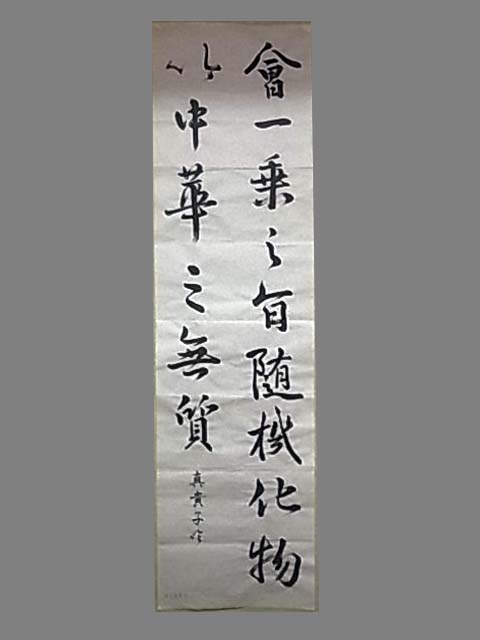 會一乗之旨随機化物
以中華之無質
真貴子